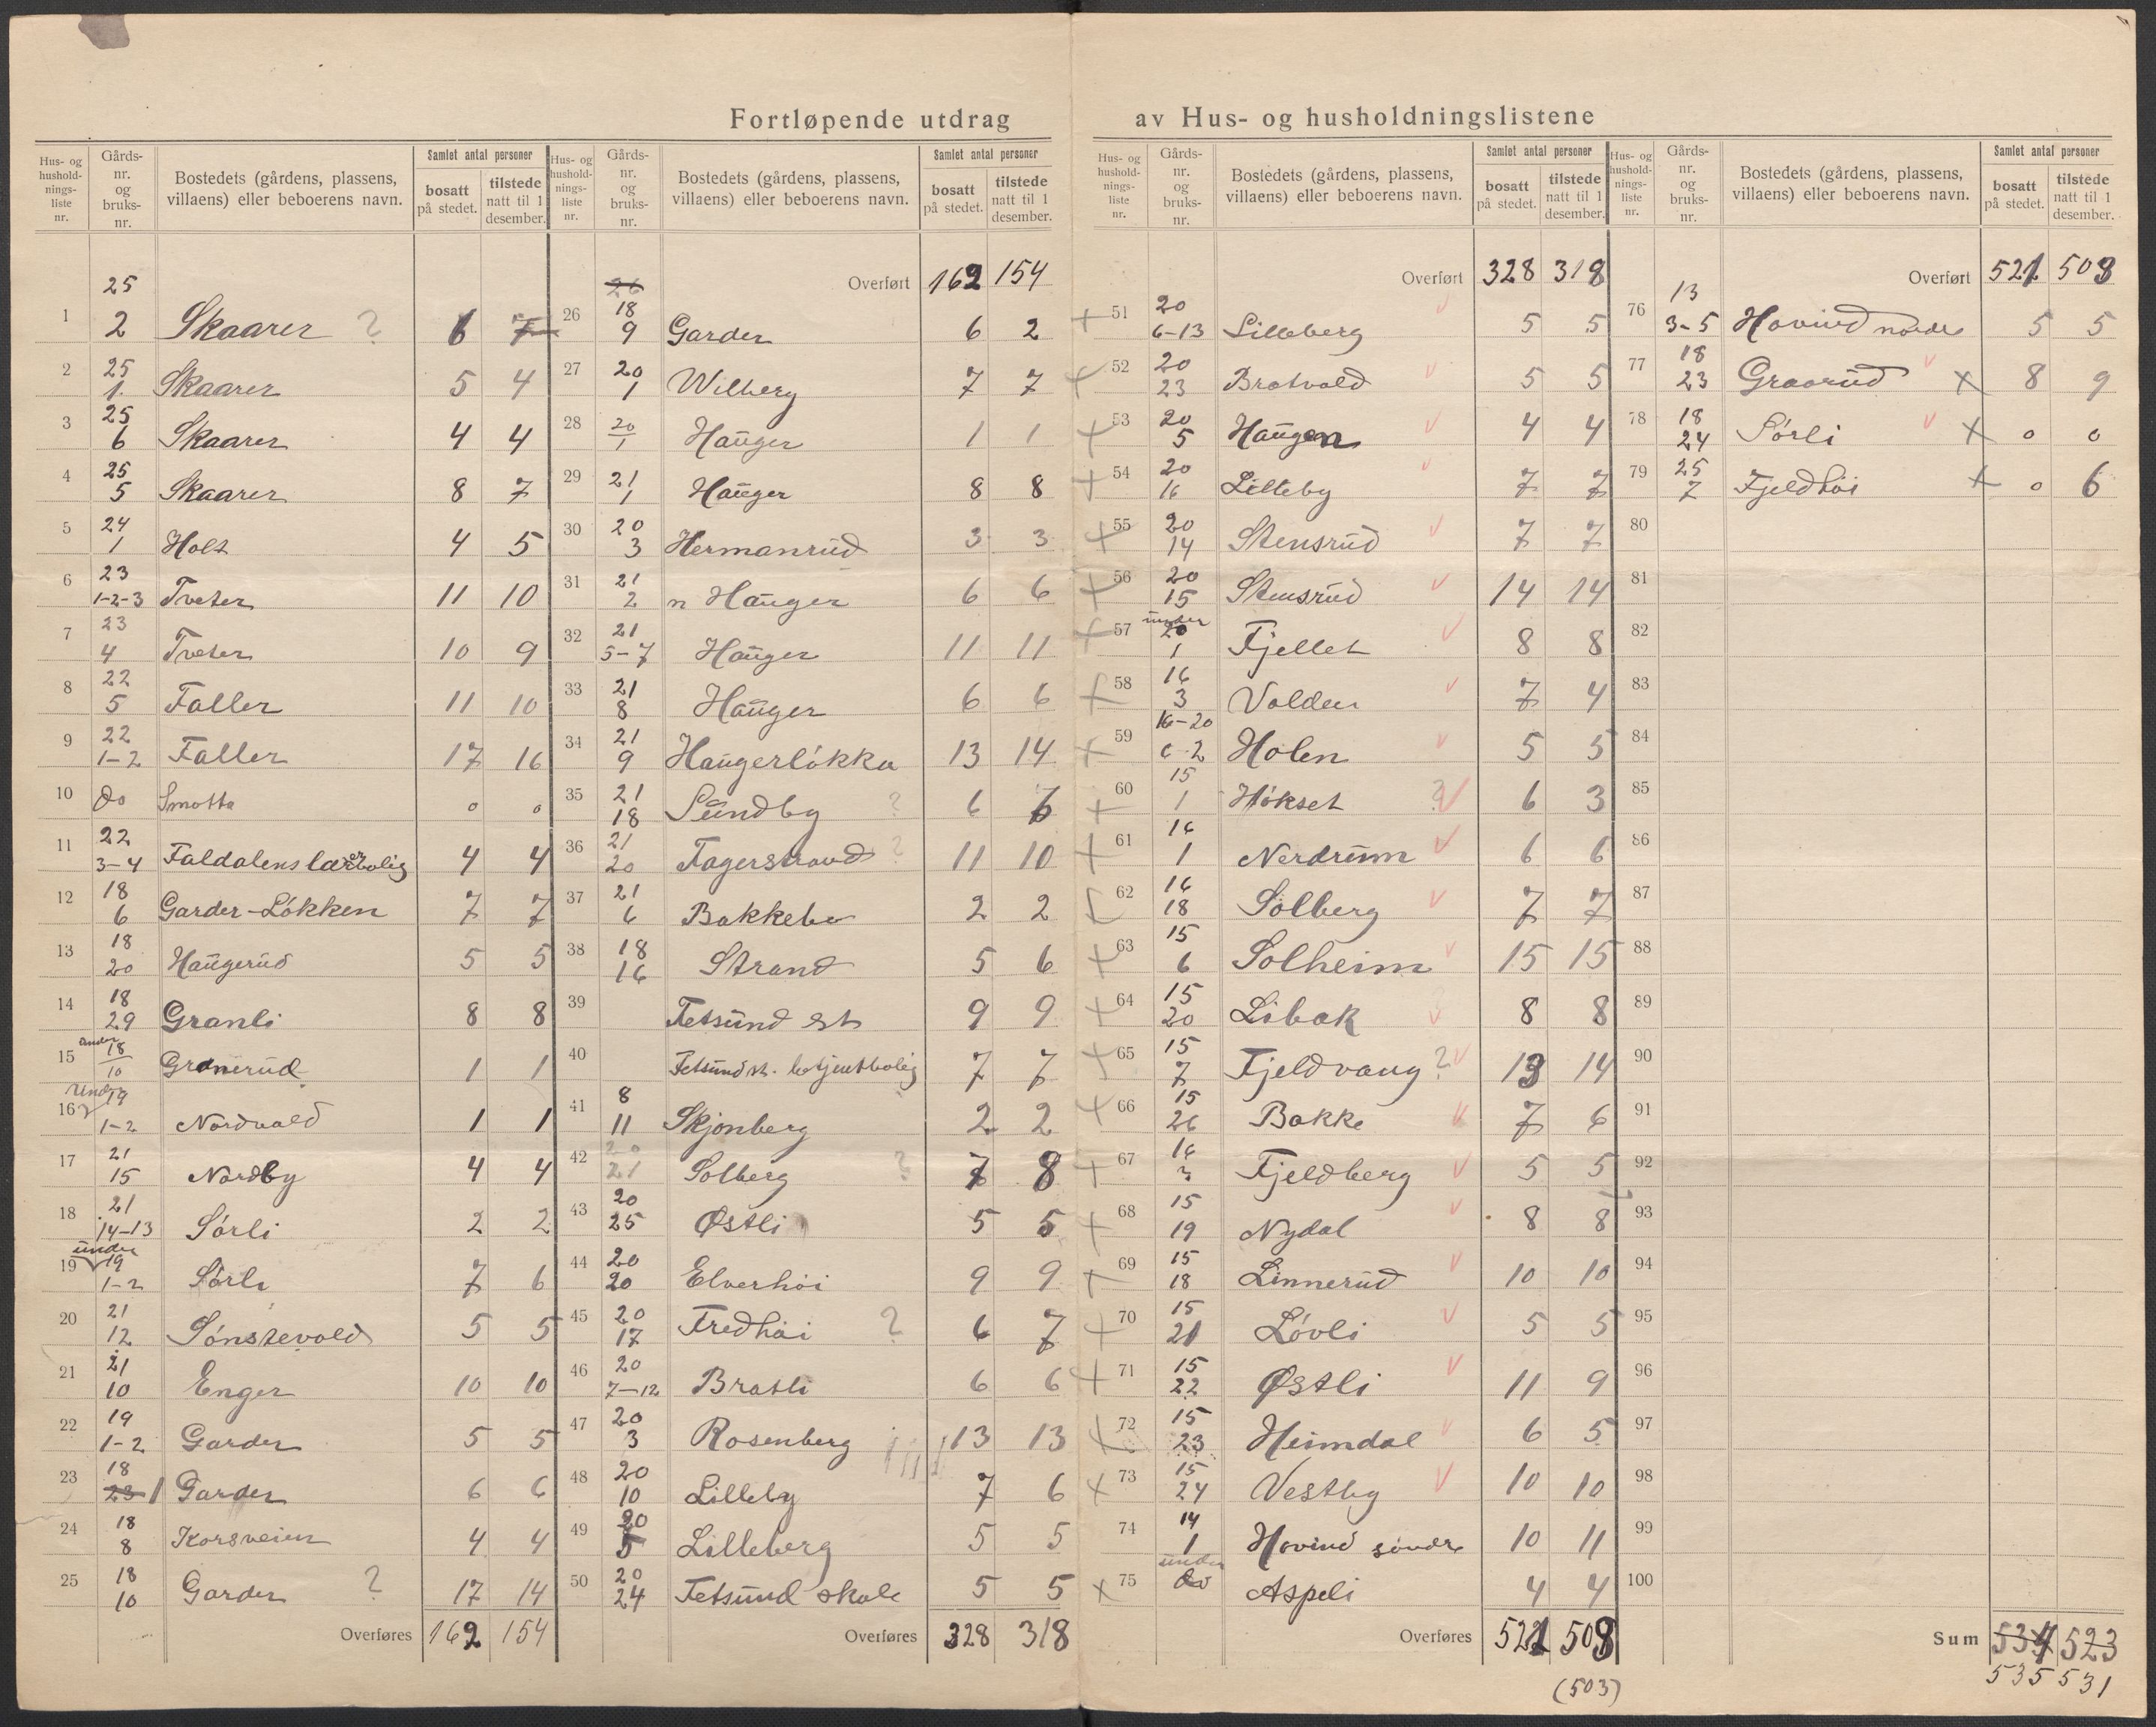 Fortløpende utdrag av Hus- og husholdningslistene
Hus- og husholdnings-liste nr. Gårds-nr. og bruks-nr. Bostedets (gårdens, plassens, villaens) eller beboerens navn. Samlet antal personer bosatt på stedet. tilstede natt til 1 desember.
1 25 2 Skaarer ? 6 7
2 25 1 Skaarer 5 4
3 25 6 Skaarer 4 4
4 25 5 Skaarer 8 7
5 24 1 Holt 4 5
6 23 1-2-3 Tveter 11 10
7 23 4 Tveter 10 9
8 22 5 Faller 11 10
9 22 1-2 Faller 17 16
10 do Smotta 0 0
11 22 3-4 Faldalens lærerbolig 4 4
12 18 6 Garder-Løkken 7 7
13 18 20 Haugerud 5 5
14 18 29 Granli 8 8
15 under 18 10 Granerud 1 1
16 under 19 1-2 Nordvold 1 1
17 21 15 Nordby 4 4
18 21 14-13 Sørli 2 2
19 under 19 1-2 Sørli 7 6
20 21 12 Sønstevold 5 5
21 21 10 Enger 10 10
22 19 1-2 Garder 5 5
23 18 23 1 Garder 6 6
24 18 8 Korsveien 4 4
25 18 10 Garder ? 17 14
Overføres 162 154
Hus- og husholdnings-liste nr. Gårds-nr. og bruks-nr. Bostedets (gårdens, plassens, villaens) eller beboerens navn. Samlet antal personer bosatt på stedet. tilstede natt til 1 desember.
Overført 162 154
26 26 18 9 Garder 6 2
27 20 1 Wilberg 7 7
28 20 1 Hauger 1 1
29 21 1 Hauger 8 8
30 20 3 Hermanrud 3 3
31 21 2 n Hauger 6 6
32 21 5-7 Hauger 11 11
33 21 8 Hauger 6 6
34 21 9 Haugerløkka 13 14
35 21 18 Sundby ? 6 6
36 21 20 Fagerstrand ? 11 10
37 21 6 Bakkebo 2 2
38 18 16 Strand 5 6
39 Fetsund st 9 9
40 Fetsund st. betjentbolig 7 7
41 8 11 Skjønberg 2 2
42 20 21 Solberg ? 7 8
43 20 25 Østli 5 5
44 20 20 Elverhøi 9 9
45 20 17 Fredhøi ? 6 7
46 20 7-12 Bratli 6 6
47 20 3 Rosenberg 13 13
48 20 10 Lilleby 7 6
49 20 5 Lilleberg 5 5
50 20 24 Fetsund skole 5 5
Overføres 328 318
Hus- og husholdnings-liste nr. Gårds-nr. og bruks-nr. Bostedets (gårdens, plassens, villaens) eller beboerens navn. Samlet antal personer bosatt på stedet. tilstede natt til 1 desember.
Overført 328 318
51 20 6-13 Lilleberg 5 5
52 20 23 Bratvold 5 5
53 20 5 Haugen 4 4
54 20 16 Lilleby 7 7
55 20 14 Stensrud 7 7
56 20 15 Stensrud 14 14
57 under 20 1 Fjellet 8 8
58 16 3 Volden 7 4
59 16-20 6-2 Holen 5 5
60 15 1 Høkset ? 6 3
61 16 1 Nerdrum 6 6
62 16 18 Solberg 7 7
63 15 6 Solheim 15 15
64 15 20 Libak 8 8
65 15 7 Fjeldvang ? 13 14
66 15 26 Bakke 7 6
67 16 3 Fjeldberg 5 5
68 15 19 Nydal 8 8
69 15 18 Linnerud 10 10
70 15 21 Løvli 5 5
71 15 22 Østli 11 9
72 15 23 Heimdal 6 5
73 15 24 Vestby 10 10
74 14 1 Hovind søndre 10 11
75 under do Aspeli 4 4
Overføres 521 508
(503)
Hus- og husholdnings-liste nr. Gårds-nr. og bruks-nr. Bostedets (gårdens, plassens, villaens) eller beboerens navn. Samlet antal personer bosatt på stedet. tilstede natt til 1 desember.
Overført 521 508
76 13 3-5 Hovind nordre 5 5
77 18 23 Graarud 8 9
78 18 24 Sørli 0 0
79 25 7 Fjeldhøi 0 6
80
81
82
83
84
85
86
87
88
89
90
91
92
93
94
95
96
97
98
99
100
Sum 534 523
535 531